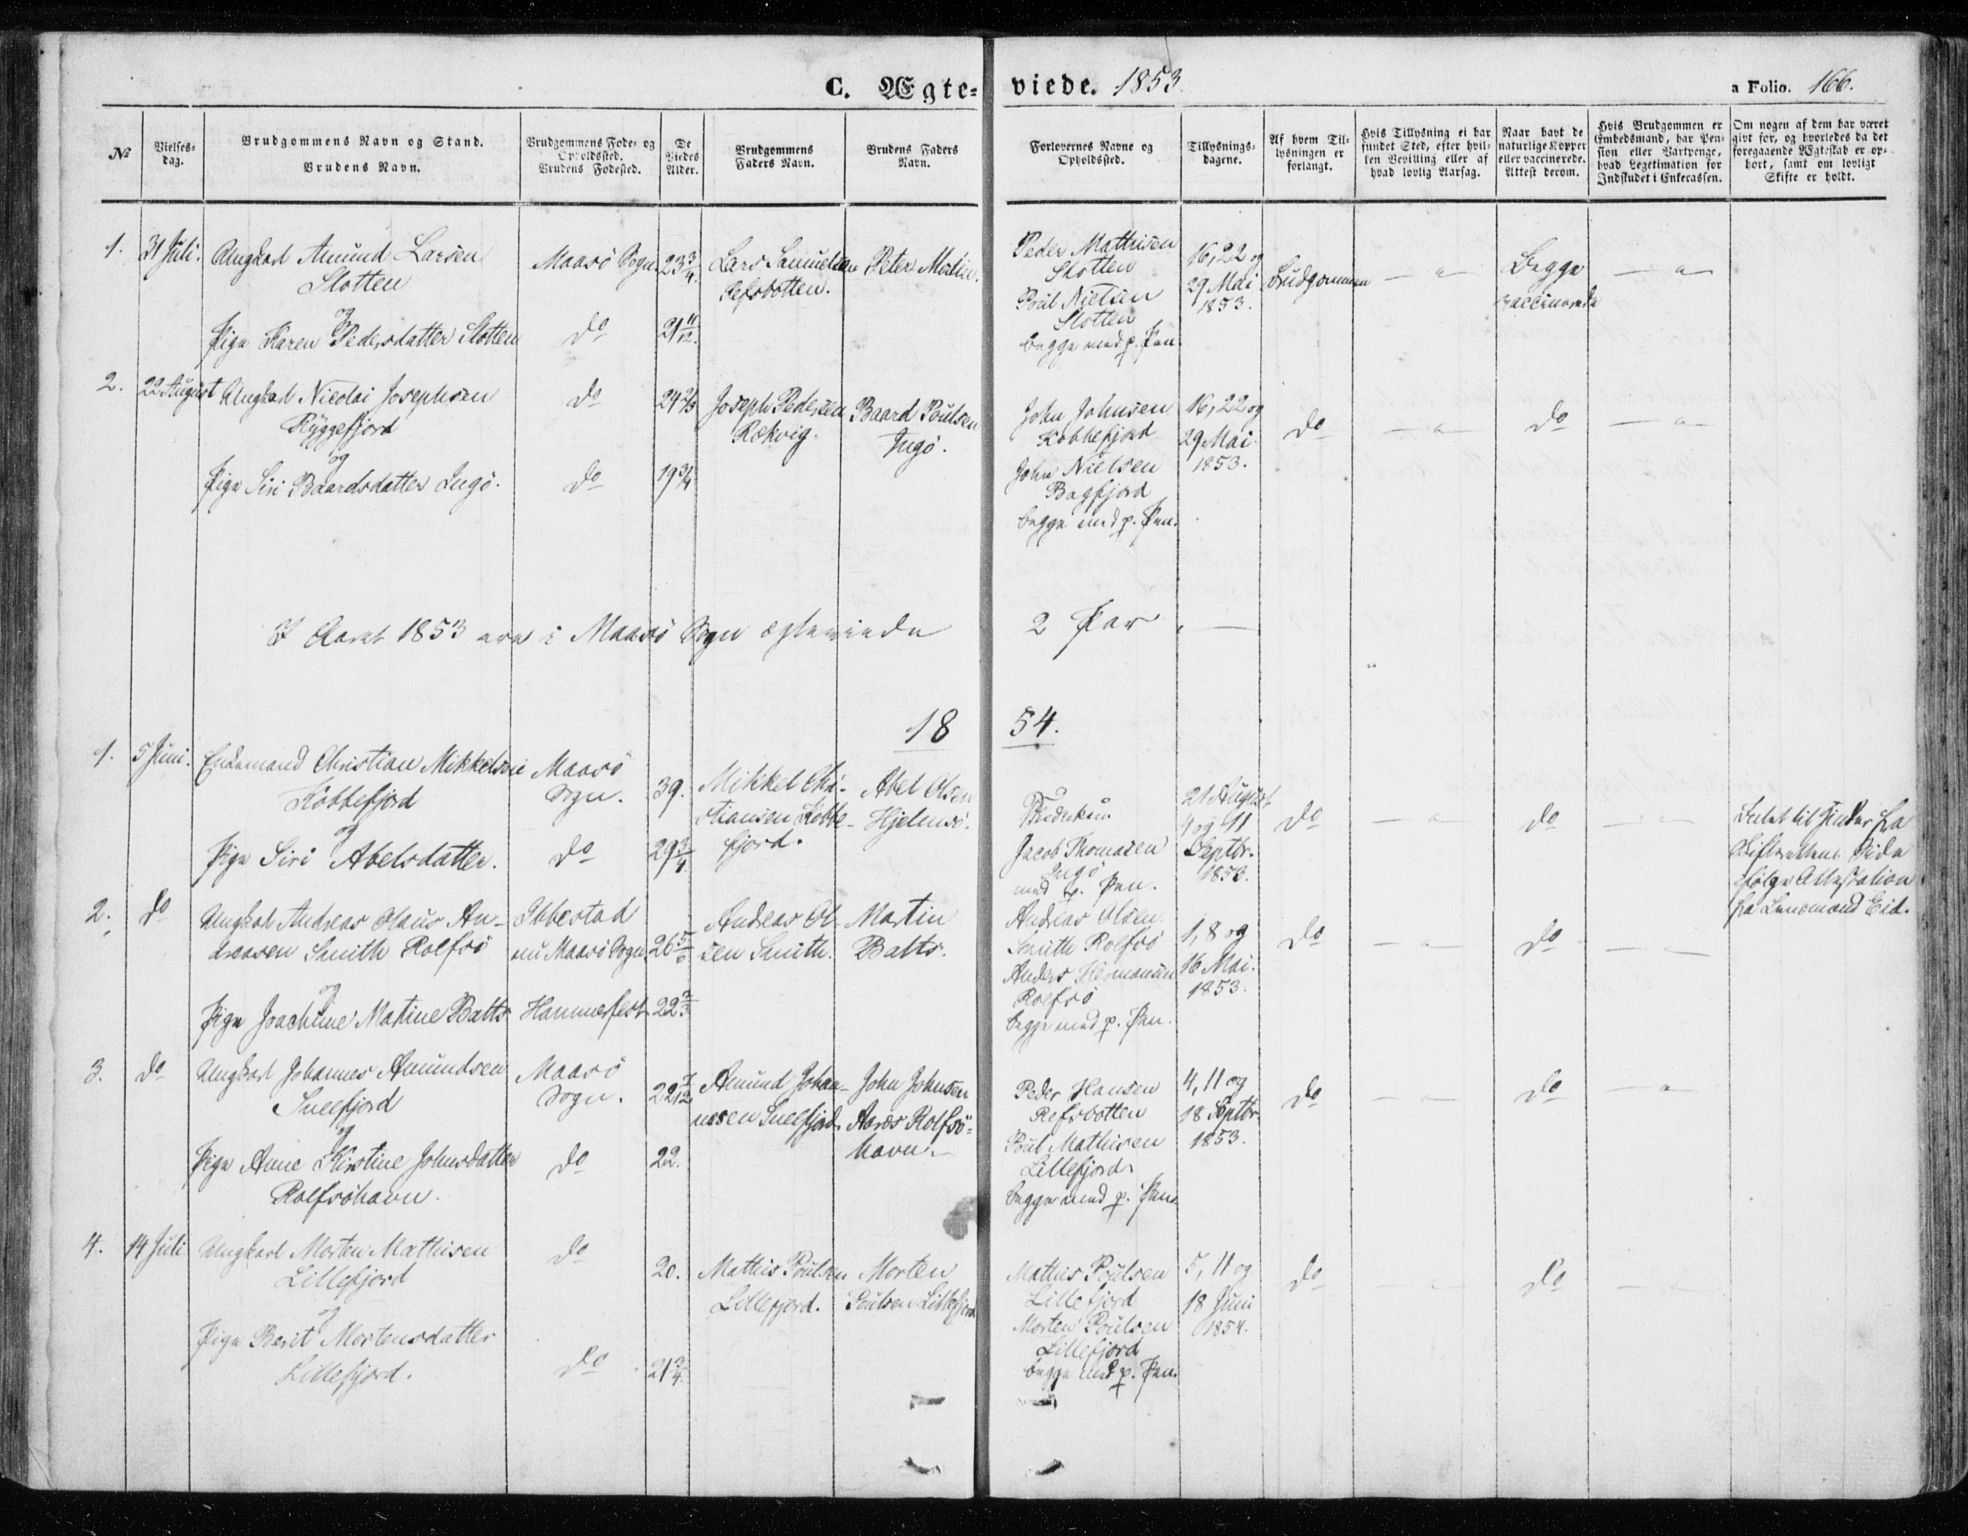 C. Ægte-viede. 1853.
a Folio. 166.
No
Vielses-
dag.
Brudgommens Navn og Stand.
Brudens Navn.
Brudgommens Føde- og
Opholdssted.
Brudens Fødested.
De
Viedes
Alder.
Brudgommens
Faders Navn.
Brudens Faders
Navn.
Forlovernes Navne og
Opholdssted.
Tillysnings-
dagene.
Af hvem Til-
lysningen er
forlangt.
Hvis Tillysning ei har
fundet Sted, efter hvil-
ken Bevilling eller af
hvad lovlig Aarsag.
Naar havt de
naturlige Kopper
eller vaccinerede.
Attest derom.
Hvis Brudgommen er
Embedsmand, har Pen-
sion eller Vartpenge,
hvad Legetimation for
Indskudet i Enkecassen.
Om nogen af dem har været
gift før, og hvorledes da det
foregaaende Ægteskab er op-
hørt, samt om lovligt
Skifte er holdt.
1. 31 Juli. Ungkarl Amund Larsen
Slotten
og
Pige Karen Pedersdatter Slotten
Maasö Sogn
do
23 3/4
21 11/12
Lars Samuelsen
Refsbotten.
Peter Molin.
Peder Mathisen
Slotten
Poul Nielsen
Slotten
begge med p. Pen.
16, 22 og
29 Mai
1853.
Brudgommen
— " —
Begge
vaccinerede
— " —
2. 22 August Ungkarl Nicolai Josephsen
Ryggefjord
og
Pige Siri Baardsdatter Ingö.
do
do
24 2/3
19 3/4
Joseph Pedersen
Rekvig.
Baard Poulsen
Ingö.
John Johnsen
Kobbefjord
John Nielsen
Bagfjord
begge med p. Pen.
16, 22 og
29 Mai
1853.
do
— " —
do
— " —
I Aaret 1853 ere i Maasö Sogn ægteviede 2 Par.
1854.
1. 5 Juni. Enkemand Christian Mikkelsen
Kobbefjord
og
Pige Siri Abelsdatter.
Maasö
Sogn.
do
39.
29 3/4
Mikkel Chri-
stiansen Kobbe-
fjord.
Abel Olsen
Hjelmsö.
Jacob Thomasen
Ingö
med p. Pen.
21 August
4 og 11
Septbr.
1853.
do
— " —
do
— " —
fra
Skifterettens Side
ifølge Attestation
fra Lensmand Eid.
2. do Ungkarl Andreas Olaus An-
dreasen Smith Rolfsö
og
Pige Joachime Matine Batts
Ibbestad
nu Maasö Sogn
Hammerfest
26 5/6
22 2/3
Andreas Ol-
sen Smith.
Martin
Batts.
Andreas Olsen
Smith Rolfsö
Anders Hermansen
Rolfsö
begge med p. Pen.
1, 8 og
16 Mai.
1853.
do
— " —
do
— " —
3. do Ungkarl Johannes Amundsen
Snefjord
og
Pige Anne Kirstine Johnsdatter
Rolfsöhavn.
Maasö
Sogn.
do
22 7/12
22.
Amund Johan-
nesen Snefjord.
John Johnsen
Aarös Rolfsö-
havn.
Peder Hansen
Refsbotten
Poul Mathisen
Lillefjord
begge med p. Pen.
4, 11 og
18 Septbr.
1853.
do
— " —
do
— " —
4. 14 Juli Ungkarl Morten Mathisen
Lillefjord
og
Pige Berit Mortensdatter
Lillefjord.
do
do
20.
21 3/4.
Mathis Poulsen
Lillefjord.
Morten
Poulsen Lillefjord
Mathis Poulsen
Lillefjord
Morten Poulsen
Lillefjord
begge med p. Pen.
5, 11 og
18 Juni
1854.
do
— " —
do
— " —